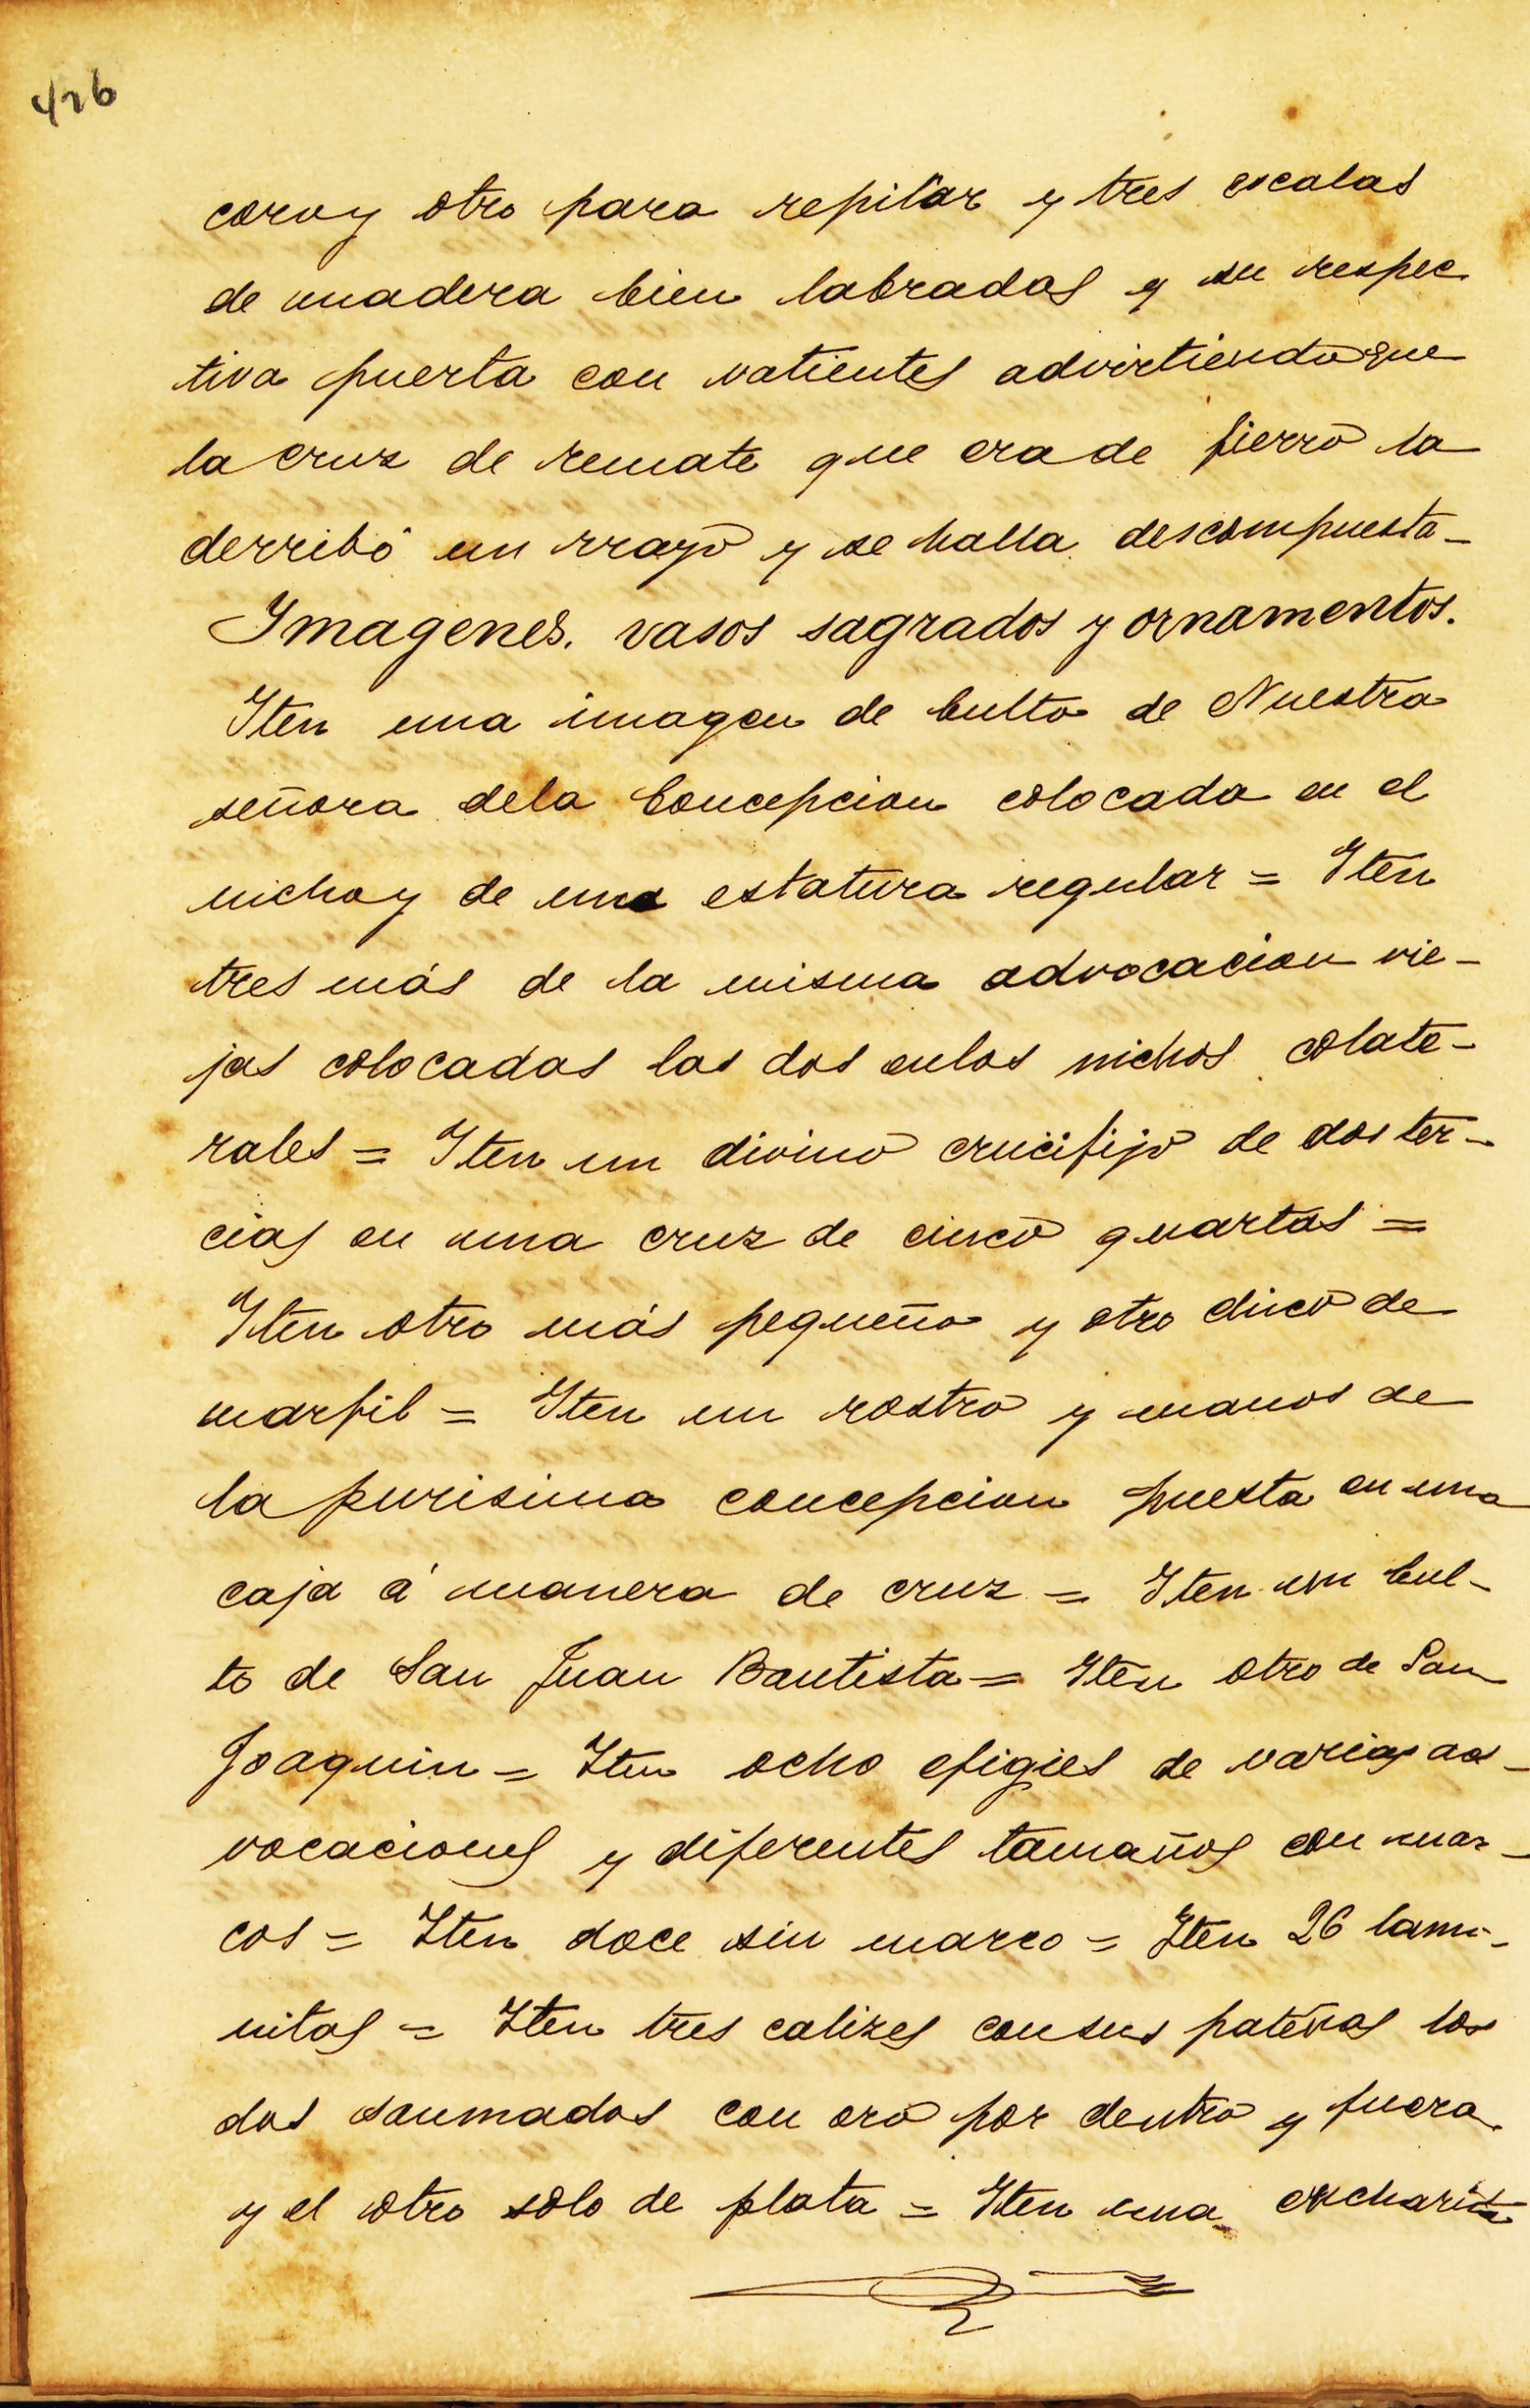 426
coro y otro para repicar y tres escalas
de madera bien labradas y su respec
tiva puerta con vatientes advirtiendo que
la cruz de remate que era de fierro la
derribó un rrayo y se halla descompuesta_
Imagenes. vasos sagrados y ornamentos.
Iten una imagen de bulto de Nuestra
señora dela Concepcion colocada en el
nicho y de una estatura regular = Iten
tres más de la misma advocacion vie-
jas colocadas las dos enlos nichos colate-
rales = Iten un divino crucifijo de dos ter-
cias en una cruz de cinco quartas =
Iten otro más pequeño y otro chico de
marfil = Iten un rostro y manos de
la purisima concepcion puesta en una
caja á manera de cruz = Iten un bul-
to de San Juan Bautista = Iten otro de San
Joaquin = Iten ocho efigies de varias ad-
vocaciones y diferentes tamaños con mar-
cos = Iten doce sin marco = Iten 26 lami-
nitas = Iten tres calizes consus patenas los
dos saumados con oro por dentro y fuera
y el otro solo de plata = Iten una cucharita